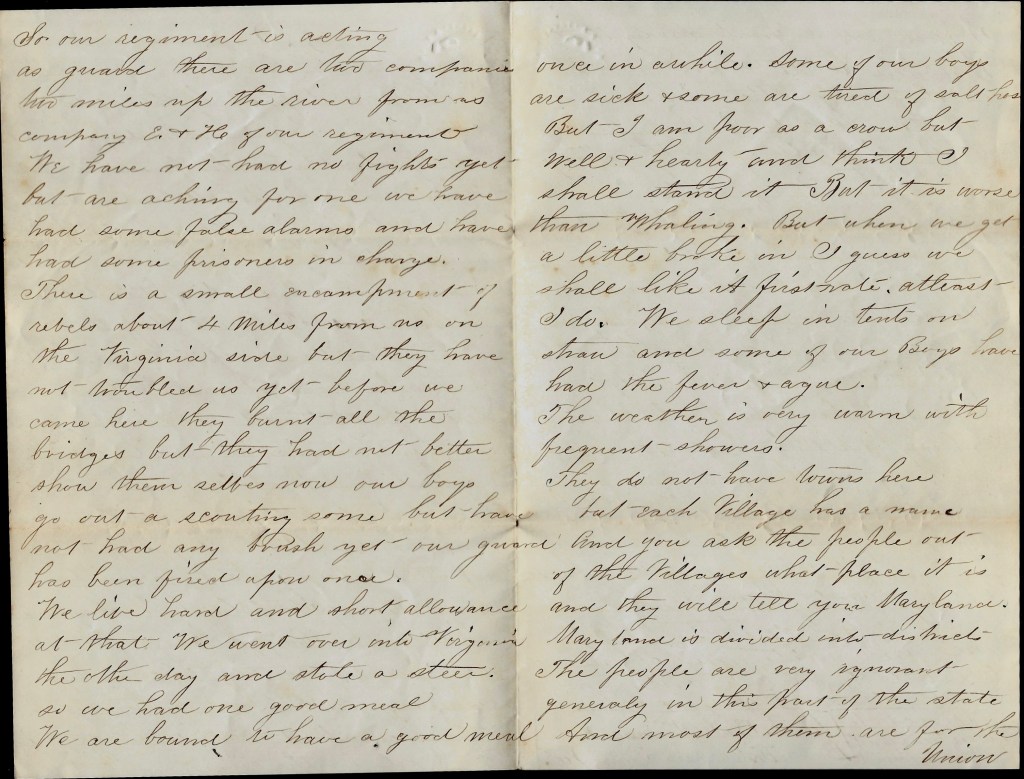 So our regiment is acting
as guard there are two companie
two miles up the river from us
company E. & H of our regiment
We have not had no fights yet
but are aching for one we have
had some false alarms and have
had some prisoners in charge.
There is a small encampment of
rebels about 4 Miles from us on
the Virginia side but they have
not troubled us yet before we
came here they burnt all the
bridges but they had not better
show them selves now our boys
go out a scouting some but have
not had any brush yet our guard
has been fired upon once.
We live hard and short allowance
at that We went over into Virginia
the other day and stole a steer.
so we had one good meal
We are bound to have a good meal
once in awhile. Some of our boys
are sick & some are tired of salt
But I am poor as a crow but
Well & hearty and think I
shall stand it But it is worse
than Whaling. But when we get
a little broke in I guess we
shall like it first rate. atleast
I do. We sleep in tents on
straw and some of our Boys have
had the fever & ague.
The weather is very warm with
frequent showers.
They do not have towns here
but each Village has a name
And you ask the people out
of the Villages what place it is
and they will tell you Maryland.
Maryland is divided into districts
The people are very ignorant
generaly in this part of the state
And most of them are for the
Union